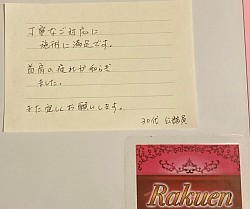 丁寧なご対応に
施術に満足です。
首肩の疲れが和らぎ
ました。
また宜しくお願いします。
30代 公務員
Rakuen